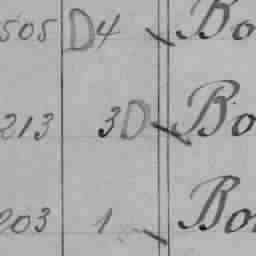 505 D4 Bo
213 3D Bo
203 1 Bo